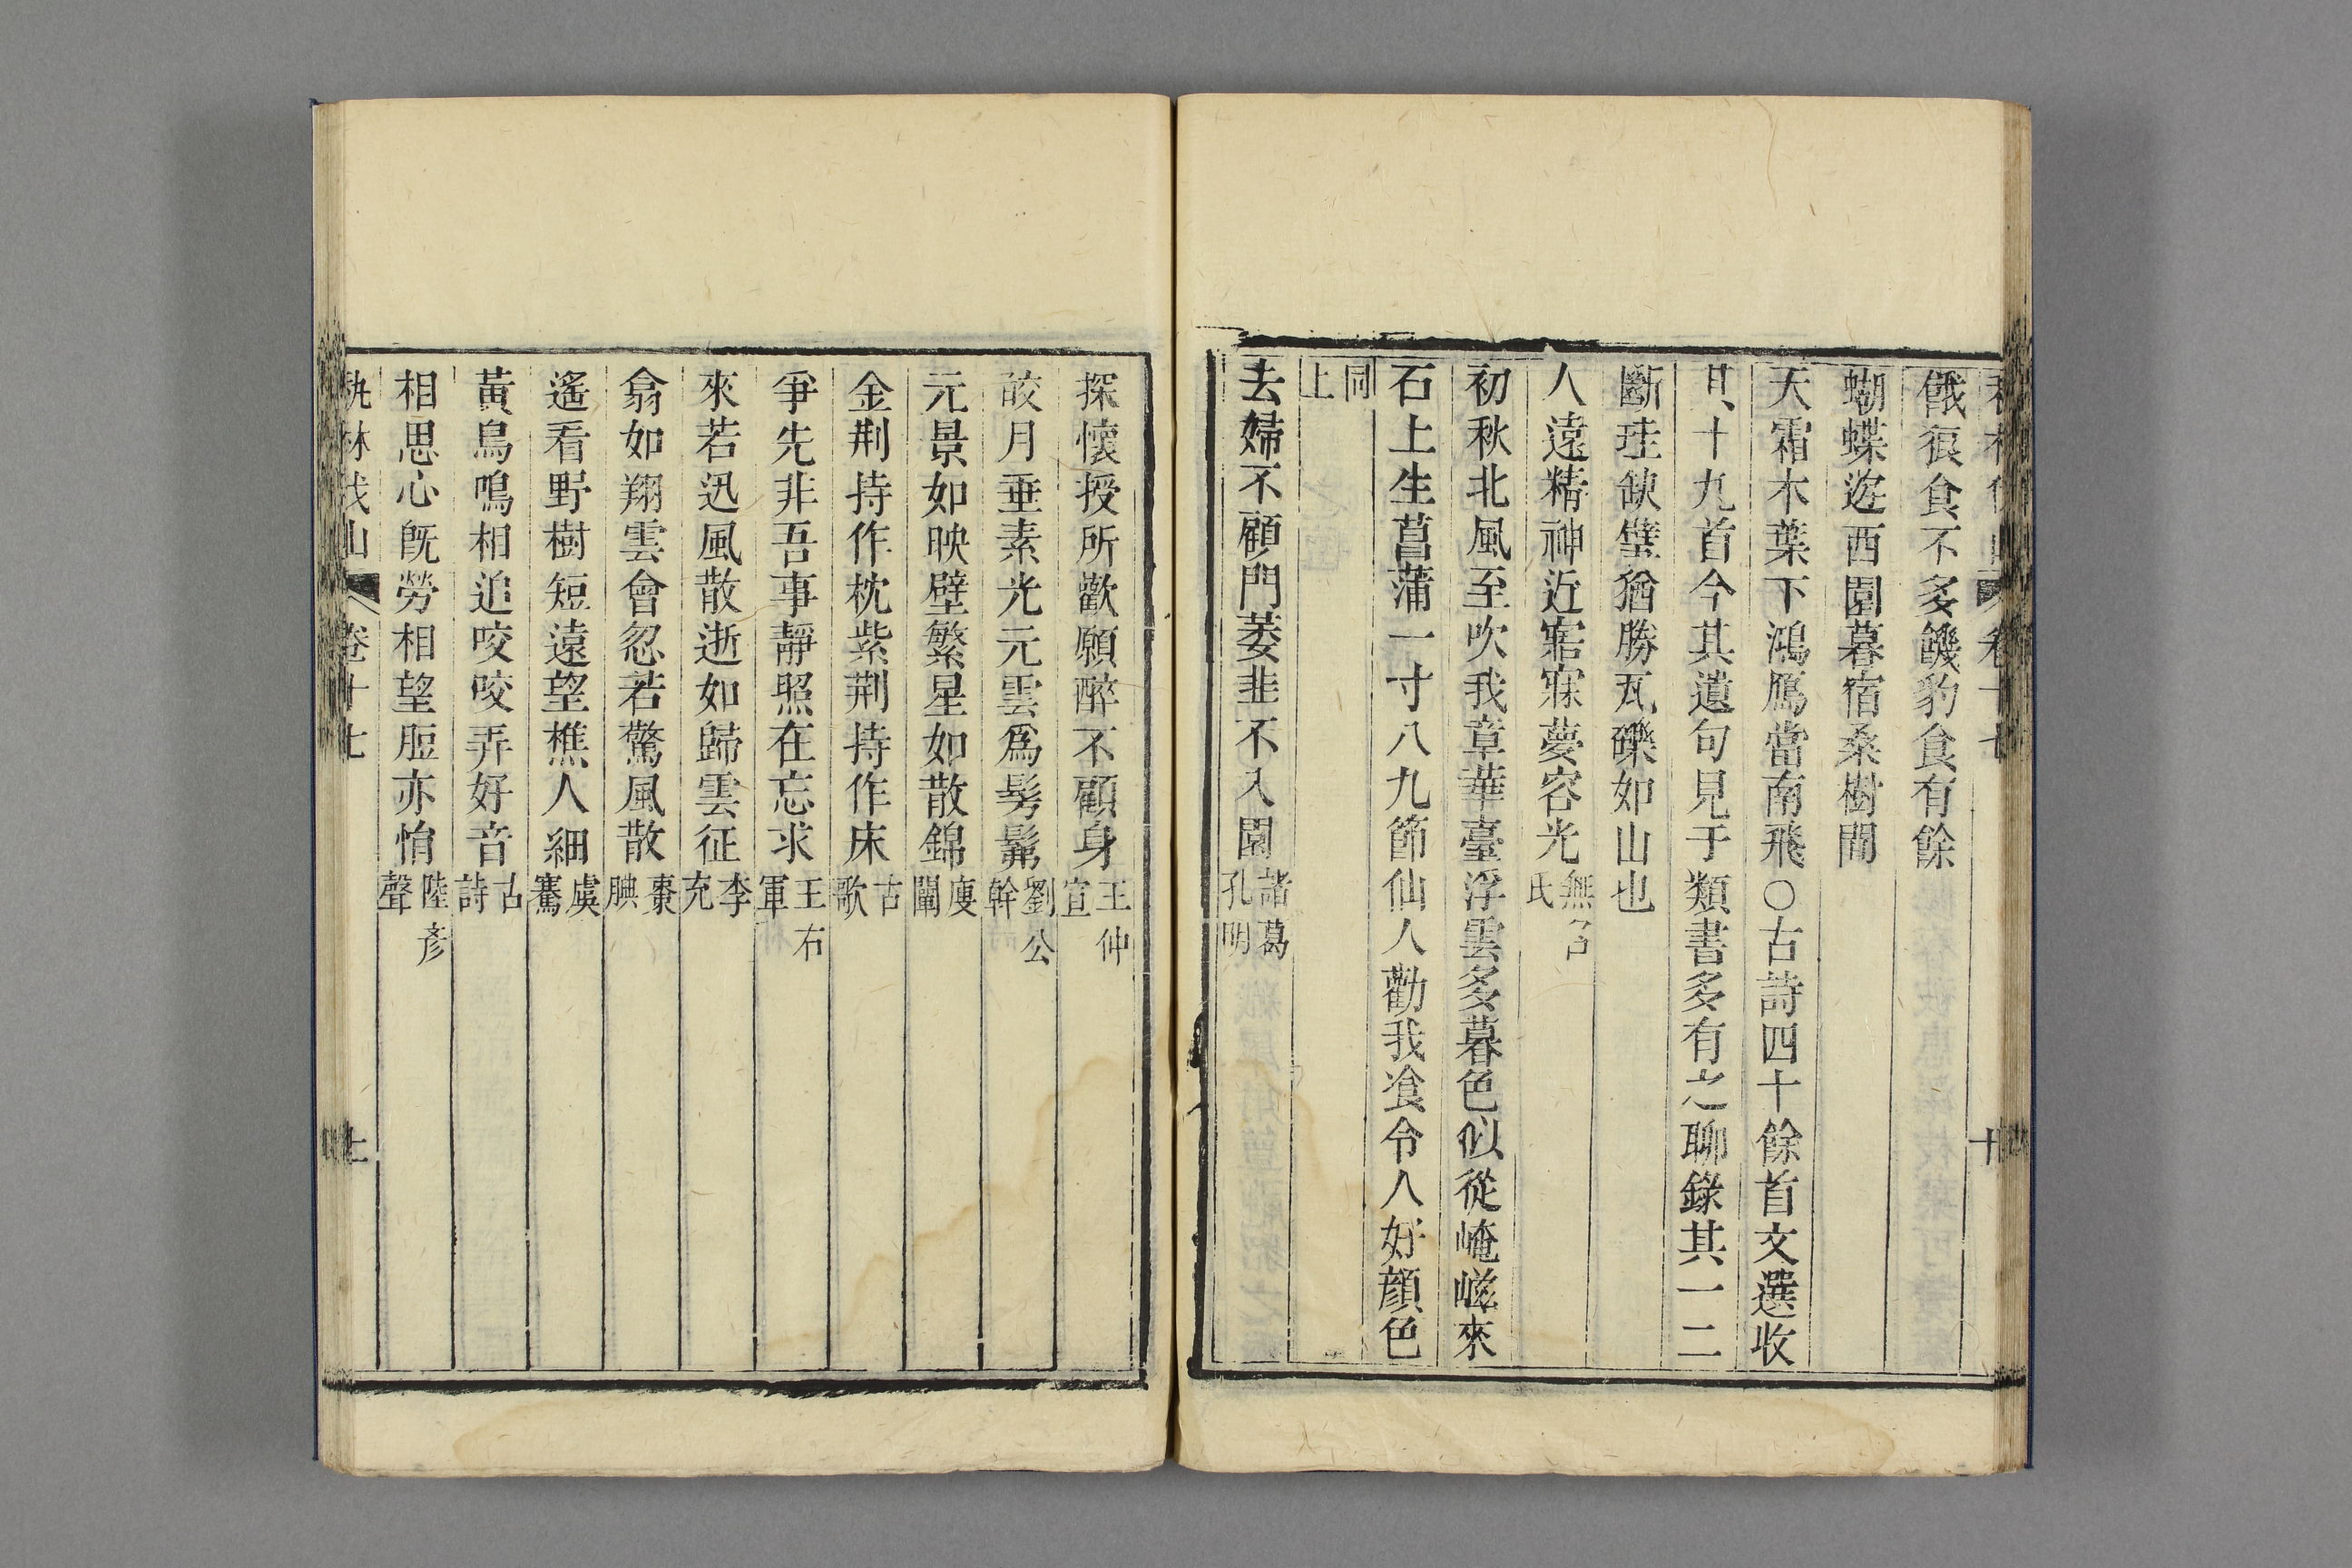 餓狼食不多饑豹食有餘
蝴蝶遊西園暮宿桑樹間
天霜木葉下鴻鴈當南飛〇古詩四十餘首文選收
其十九首今其遺句見于類書多有之聊錄其一二
斷珪缺璧猶勝瓦礫如山也
人遠精神近寤寐夢容光無名氏
初秋北風至吹我章華臺浮雲多暮色似從崦嵫來
石上生菖蒲一寸八九節仙人勸我飡令人好顏色
同上
去婦不顧門萎韭不入園諸葛孔明
探懷授所歡願醉不顧身王仲宣
皎月垂素光元雲爲髣髴劉公幹
元景如映璧繁星如散錦庾闡
金荆持作枕紫荆持作床古歌
爭先非吾事靜照在忘求王右軍
來若迅風散逝如歸雲征李充
翕如翔雲會忽若驚風散棗腆
遙看野樹短遠望樵人細虞騫
黃鳥鳴相追咬咬弄好音古詩
相思心旣勞相望脰亦悁陸彥聲
卷十七